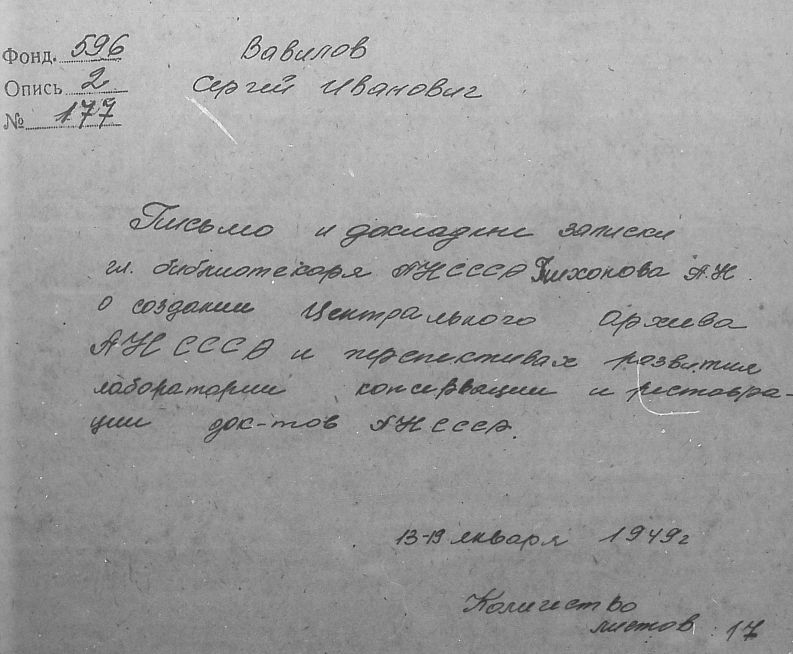 Фонд. 596
Опись 2
№ 177
Вавилов
Сергей Иванович
Письмо и докладные записки
гл. библиотекаря АН СССР Тихонова А.Н.
о создании Центрального архива
АН СССР и перспективах развития
лаборатории консервации и реставра-
ции док-тов АН СССР.
13-19 января 1949 г
Количество
листов 17